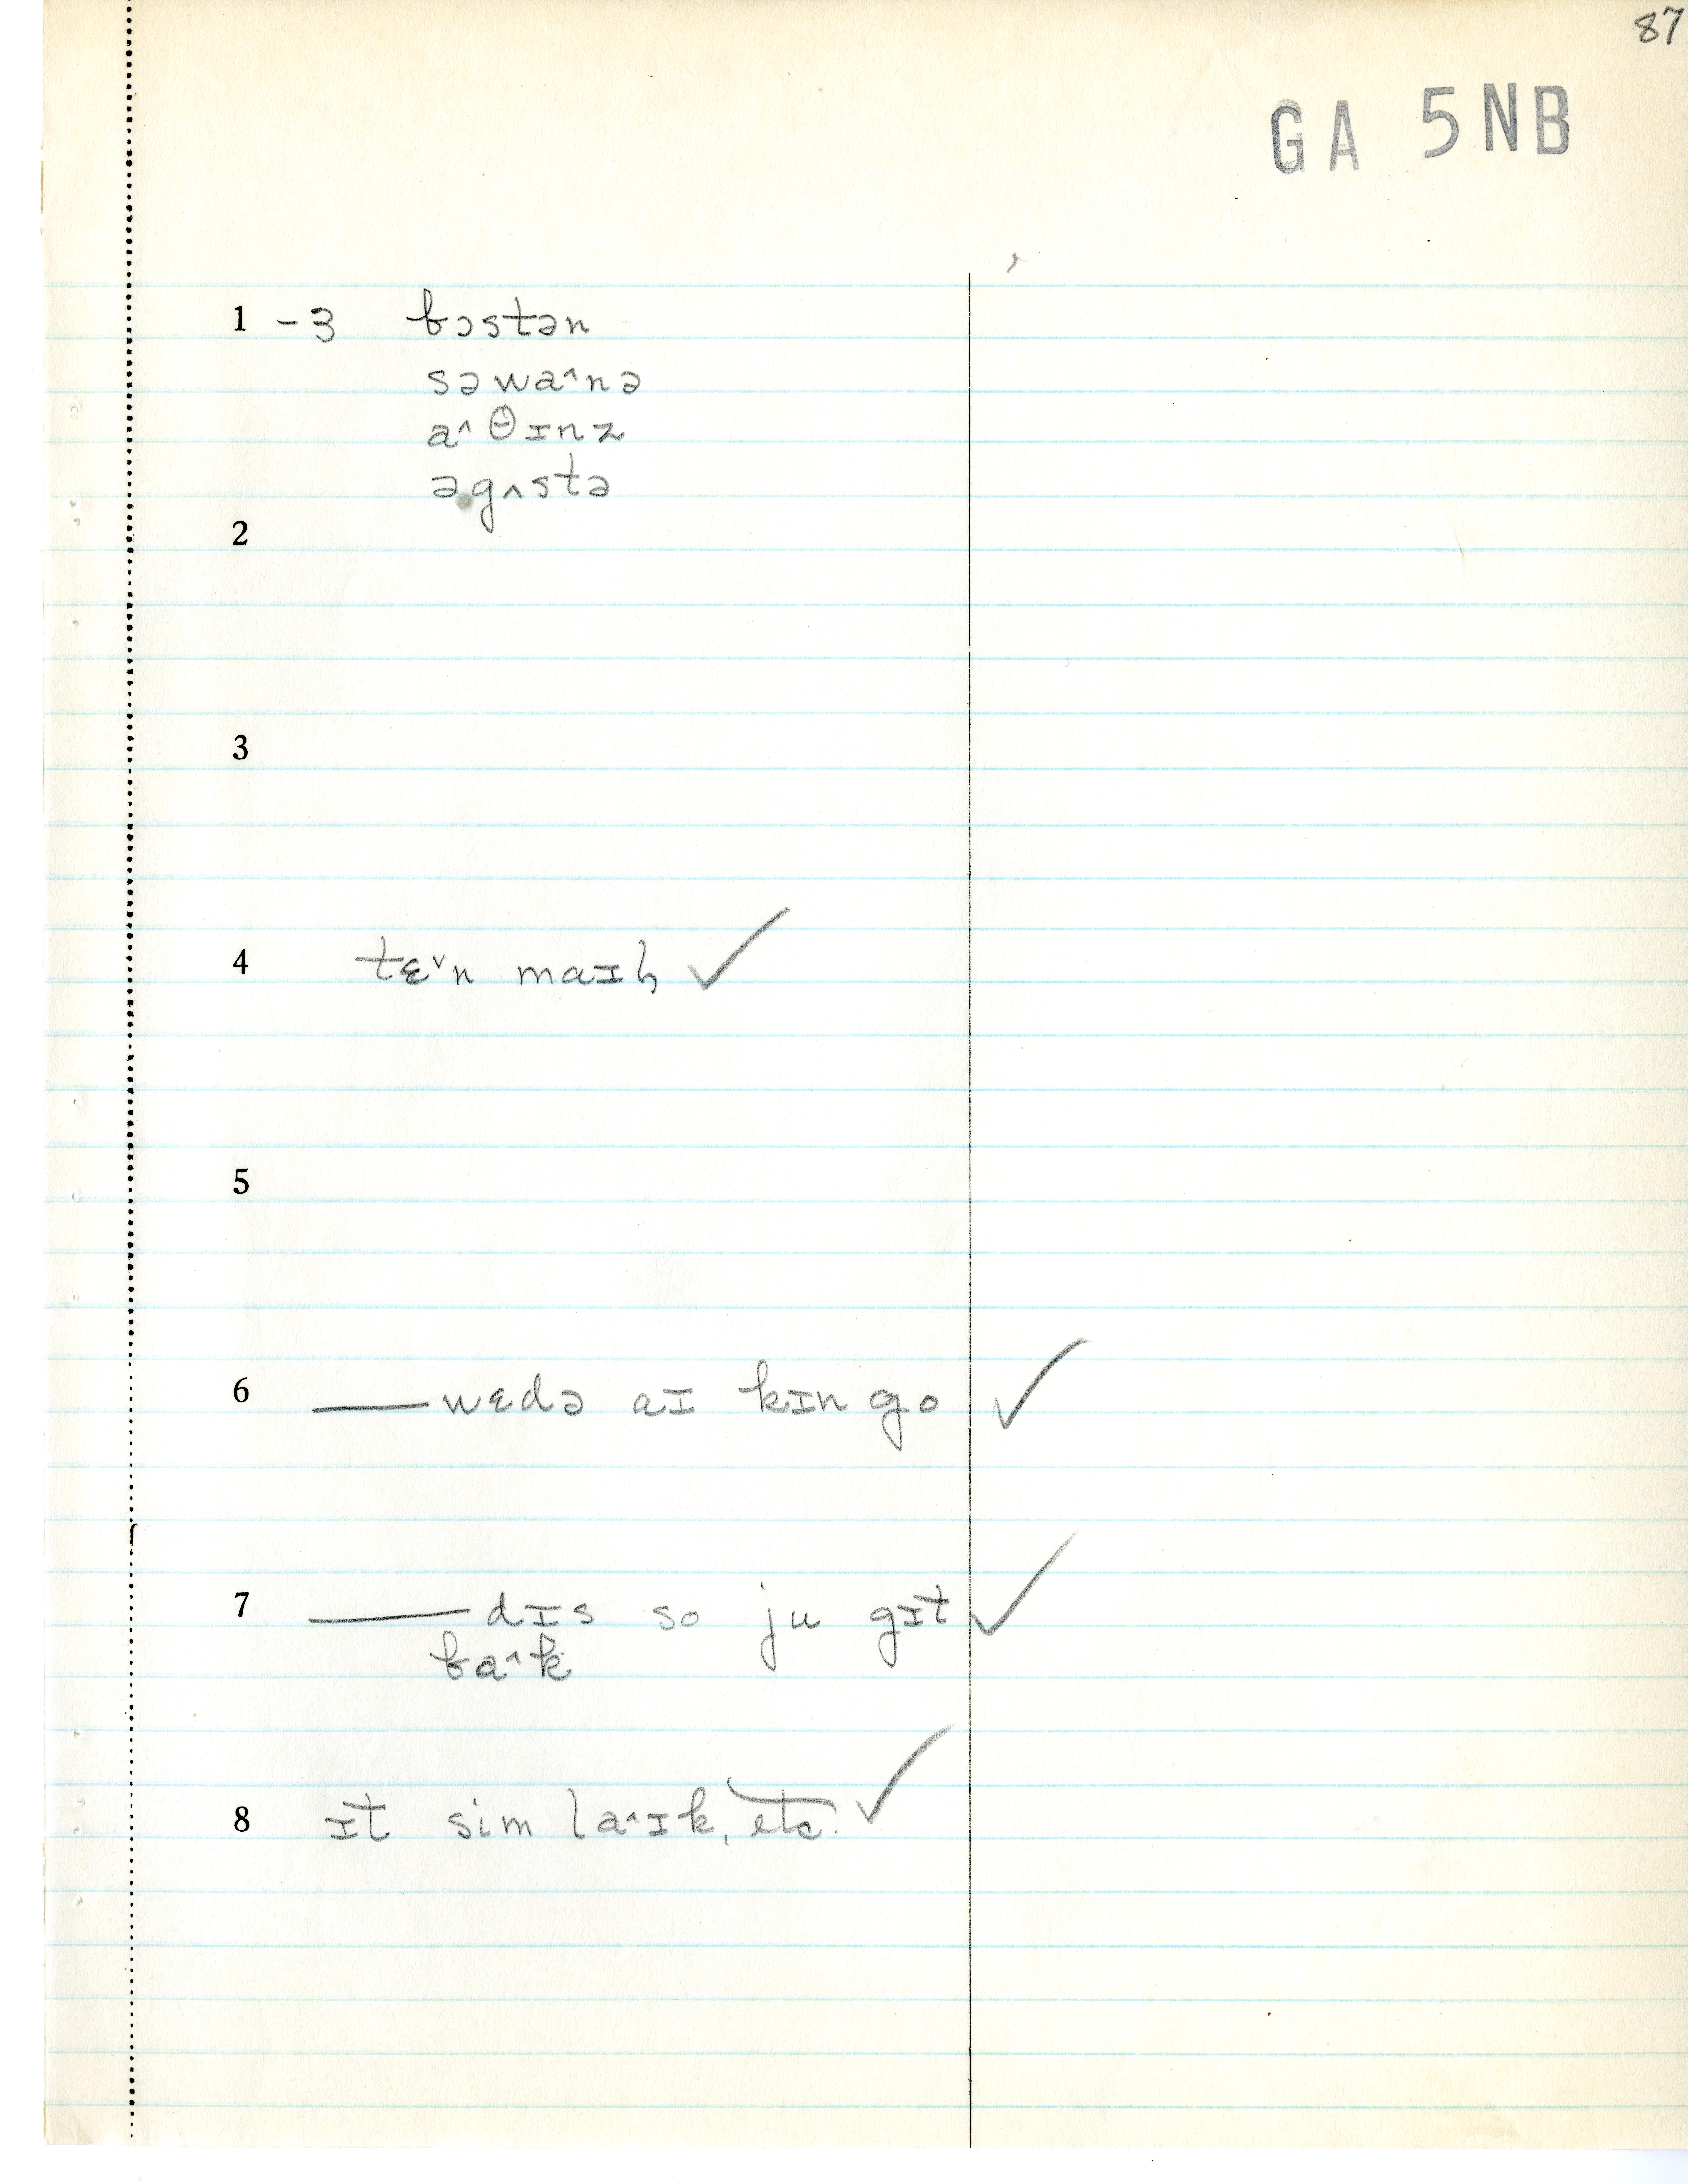 87
GA 5NB
1 -3 bɔstən
səwa^nə
a^θɪnz
əgʌstə
2
3
4 tɛˇn maɪl̥ ✓
5
6 —— wɛdə aɪ kɪn go ✓
7 —— dɪs so ju gɪt ✓
ba^k
8 ɪt sim la^ɪk, etc. ✓